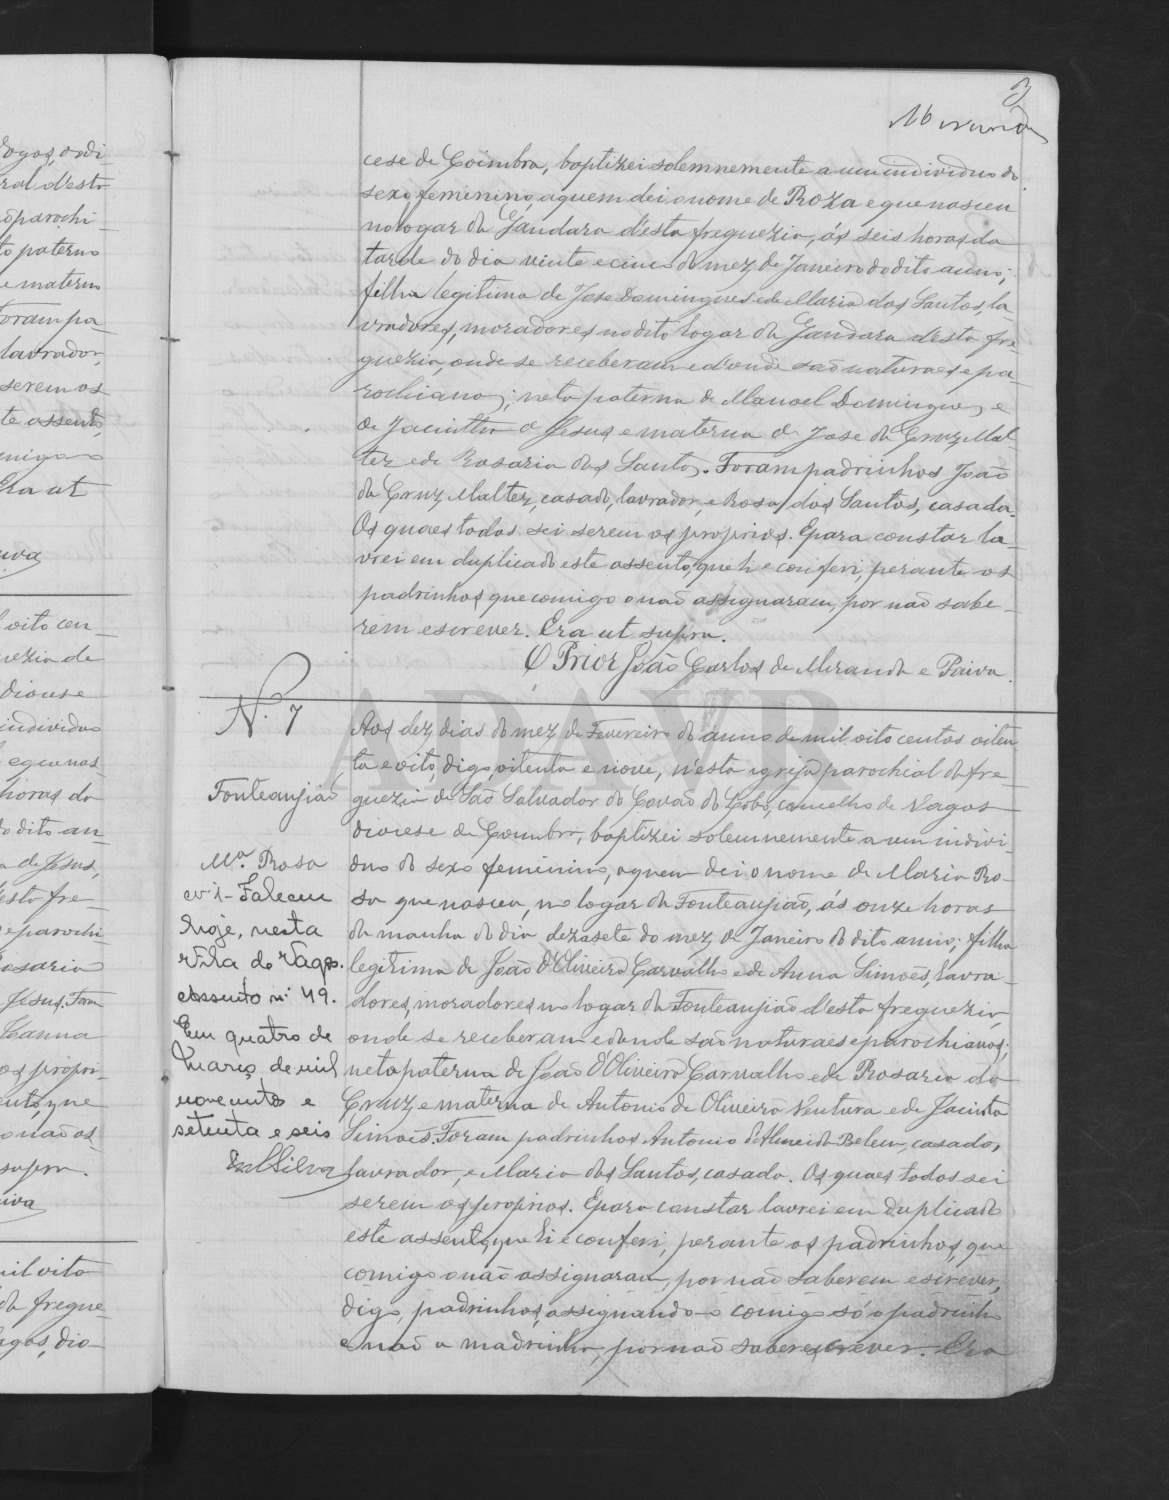 3
Miranda
cese de Coimbra, baptizei solemnemente a um individuo do
sexo femenino, a quem dei o nome de Roza e que nasceu
no logar da Gandara d'esta freguezia, ás seis horas da
tarde do dia vinte e cinco do mez de Janeiro do dito anno;
filha legitima de Jose Domingues e de Maria dos Santos, la-
vradores, moradores no dito logar da Gandara d'esta fre-
guezia, onde se receberam e d'onde são naturaes e pa-
rochianos; neta paterna de Manoel Domingues e
de Jacintha de Jesus e materna de Jose da Cruz Mal-
tez e de Rosaria dos Santos. Foram padrinhos João
da Cruz Maltez, casado, lavrador, e Rosa dos Santos, casada.
Os quaes todos sei serem os proprios. E para constar la-
vrei em duplicado este assento, que li e conferi, perante os
padrinhos que comigo o não assignaram, por não sabe-
rem escrever. Era ut supra.
O Prior João Carlos de Miranda e Paiva.
N. 7
Fonteanjião
Mª. Rosa
Faleceu
hoje, nesta
Vila de Vagos.
Assento nº 49.
Em quatro de
Março de mil
novecentos e
setenta e seis
Silva
Aos dez dias do mez de Fevereiro do anno de mil oito centos oiten
ta e oito, digo, oitenta e nove, n'esta igreja parochial da fre-
guezia de São Salvador do Covão do Lobo, concelho de Vagos
diocese de Coimbra, baptizei solemnemente a um indivi-
duo do sexo feminino, a quem dei o nome de Maria Ro-
sa que nasceu, no logar da Fonteanjião, ás onze horas
da manha do dia dezasete do mez de Janeiro do dito anno; filha
legitima de João d'Oliveira Carvalho e de Anna Simões, lavra-
dores, moradores no logar da Fonteanjião d'esta freguezia,
onde se receberam e donde são naturaes e parochianos;
neta paterna de João d'Oliveira Carvalho e de Rosaria da
Cruz, e materna de Antonio de Oliveira Ventura e de Jacinta
Simões. Foram padrinhos Antonio d'Almeida Belem, casado,
lavrador, e Maria dos Santos, casada. Os quaes todos sei
serem os proprios. E para constar lavrei em duplicado
este assento, que li e conferi, perante os padrinhos, que
comigo o não assignaram, por não saberem escrever,
digo, padrinhos, assignando-o comigo só o padrinho
e não a madrinha, por não saber escrever. Era
ADAVR